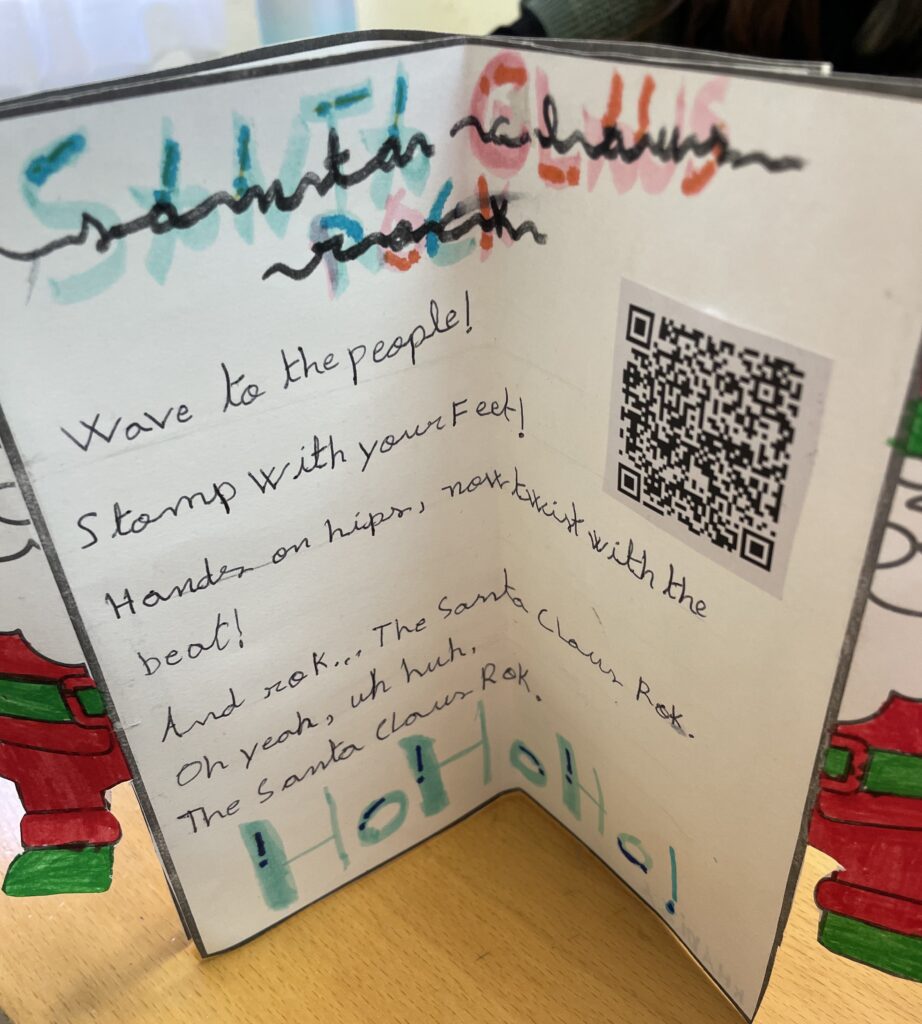 Santa Claus
rock
Wave to the people!
Stamp with your Feet!
Hands on hips, now twist with the
beat!
And rok... The Santa Claus Rok.
Oh yeah, uh huh.
The Santa Claus Rok.
! Ho! Ho! Ho!